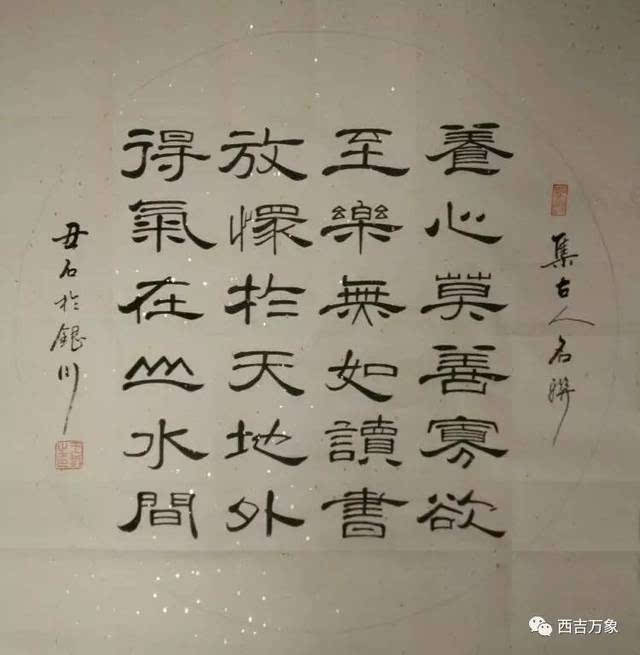 集古人名聯
養心莫善寡欲
至樂無如讀書
放懷於天地外
得氣在山水間
丑石於銀川
西吉万象